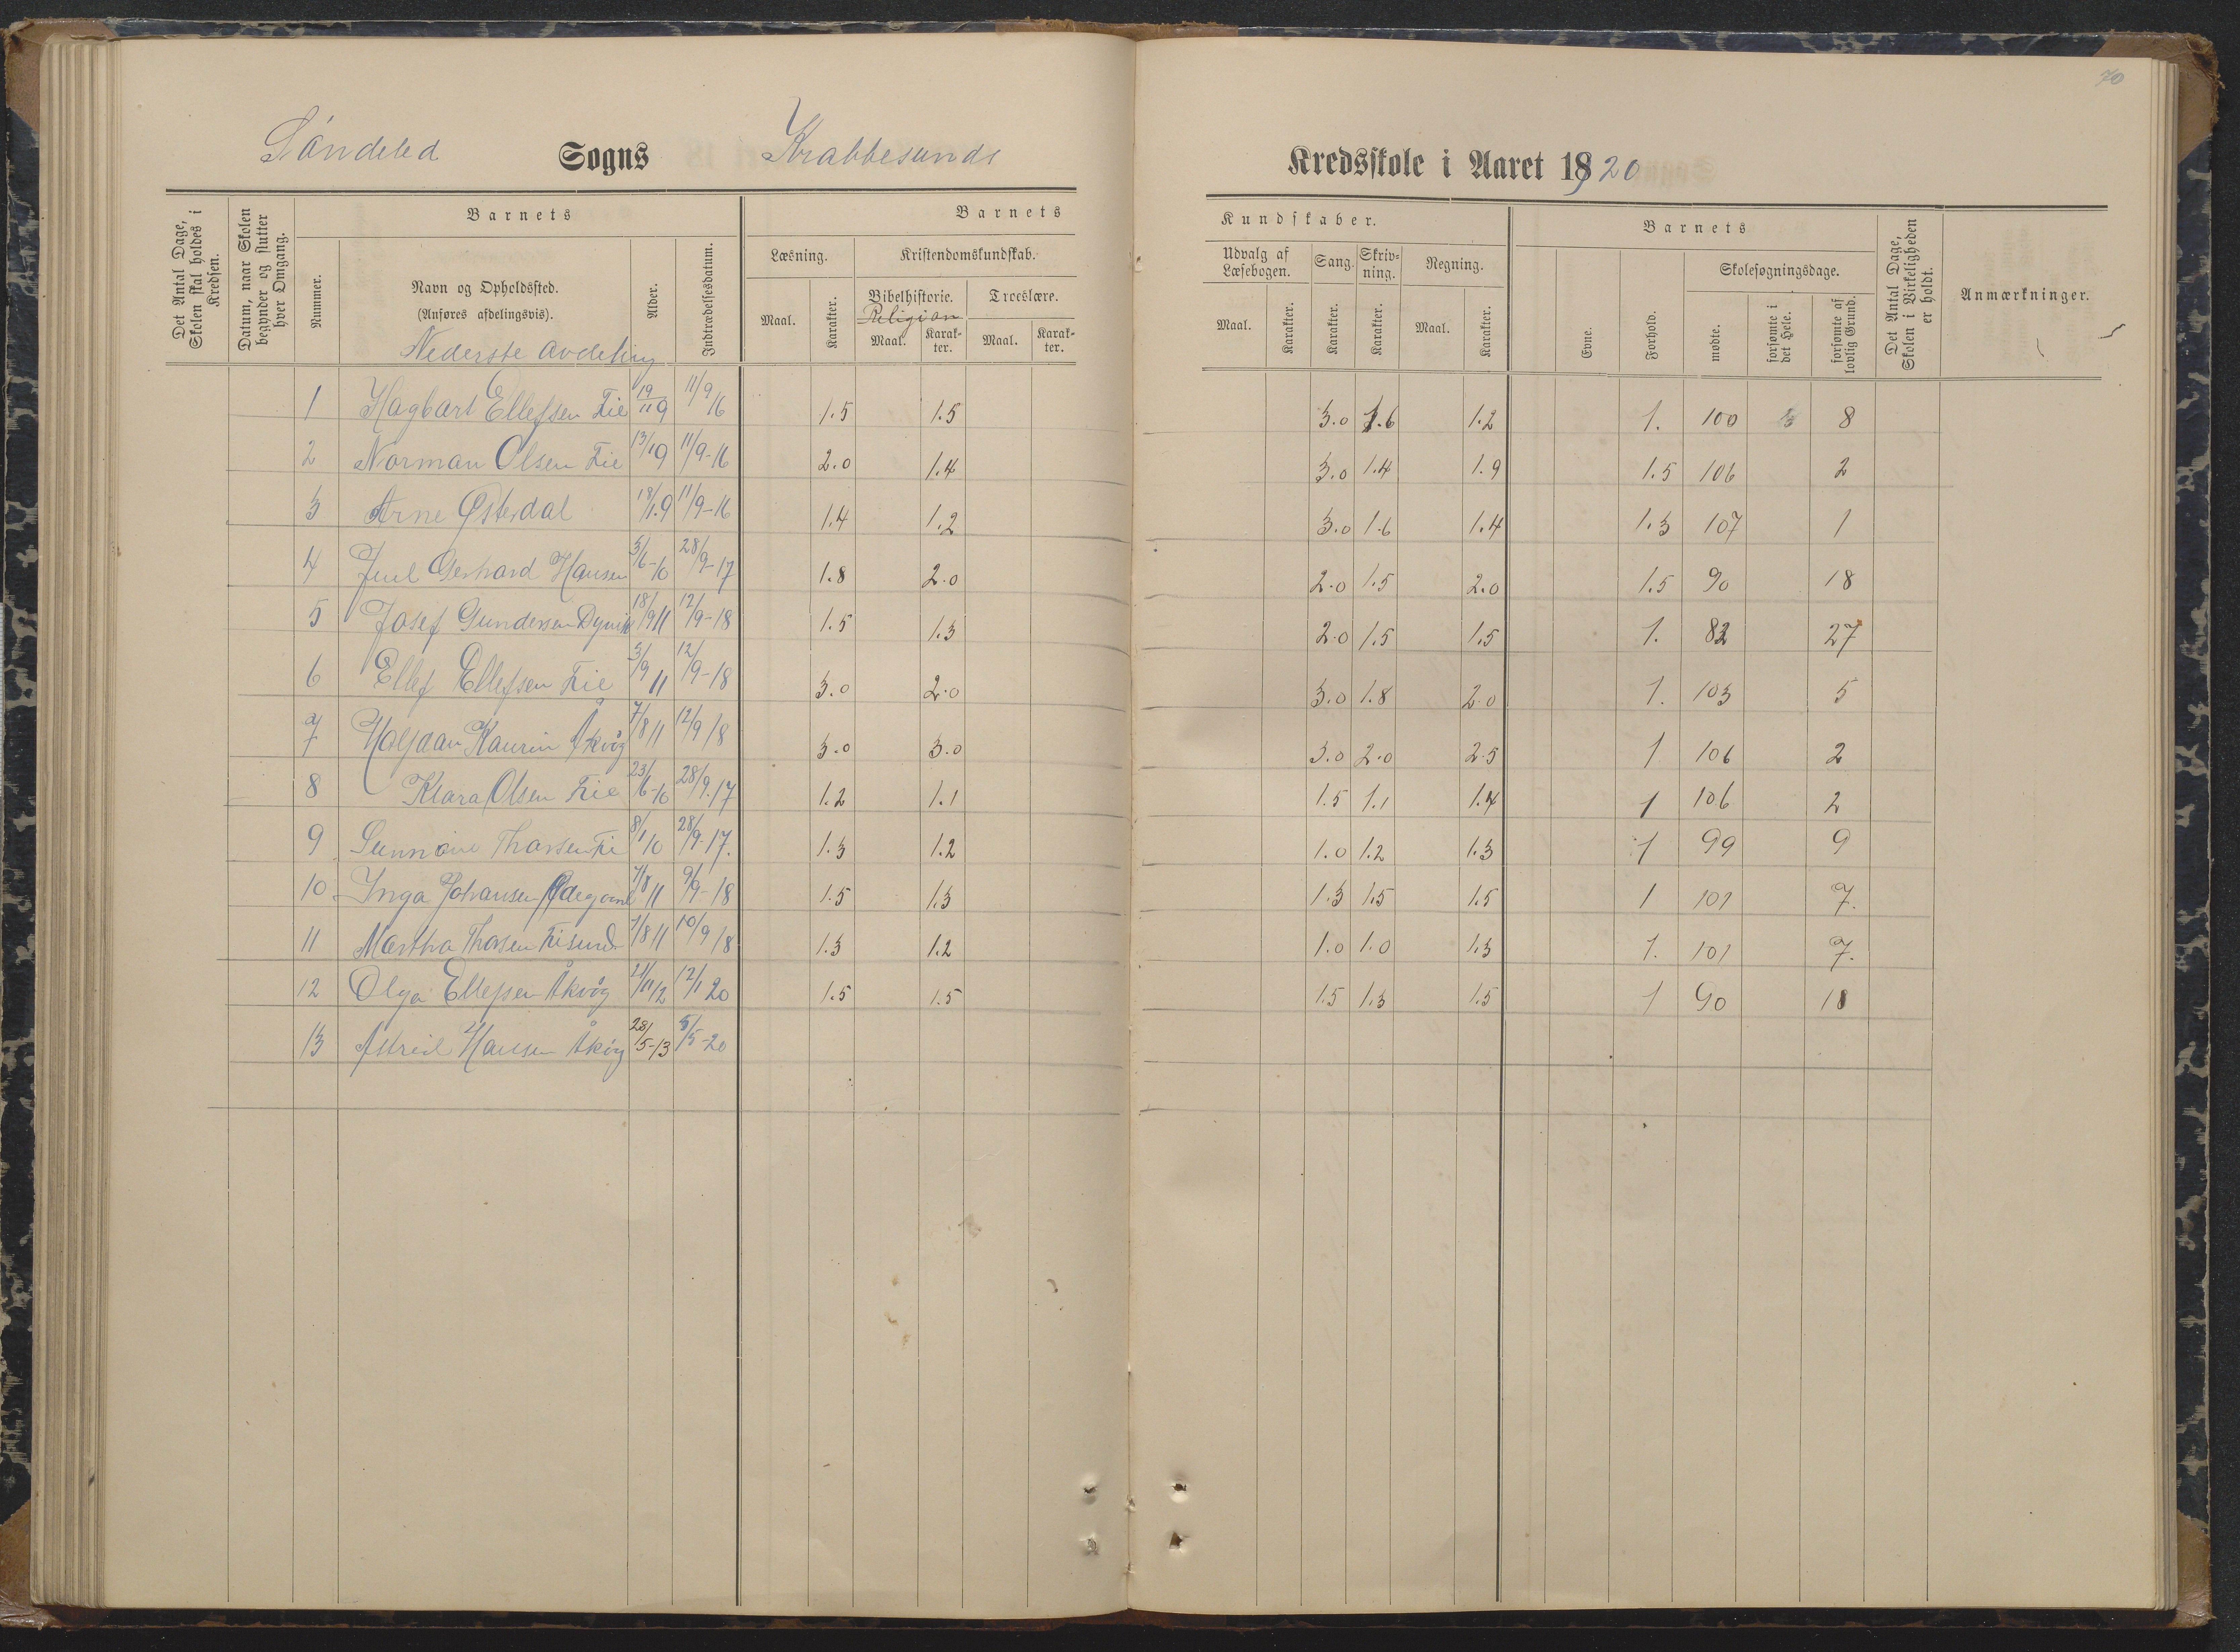 70
Søndeled Sogns Krabbesunds Kredsskole i Aaret 1920
Det Antal Dage, Skolen skal holdes i Kredsen.
Datum, naar Skolen begynder og slutter hver Omgang.
Barnets
Nummer.
Navn og Opholdssted.
(Anføres afdelingsvis).
Nederste avdeling
Alder.
Indtrædelsesdatum.
Barnets Kundskaber.
Læsning.
Maal. Karakter.
Kristendomskundskab.
Bibelhistorie. Troeslære.
Religion
Maal. Karakter. Maal. Karakter.
Udvalg af Læsebogen.
Maal. Karakter.
Sang. Karakter.
Skrivning. Karakter.
Regning.
Maal. Karakter.
Barnets
Evne.
Forhold.
Skolesøgningsdage.
mødte.
forsømte i det Hele.
forsømte af lovlig Grund.
Det Antal Dage, Skolen i Virkeligheden er holdt.
Anmærkninger.
1 Hagbart Ellefsen Lie 19/11 9 11/9 16 1.5 1.5 3.0 1.6 1.2 1. 100 8
2 Norman Olsen Lie 13/1 9 11/9-16 2.0 1.4 3.0 1.4 1.9 1.5 106 2
3 Arne Østerdal 18/1.9 11/9-16 1.4 1.2 3.0 1.6 1.4 1.3 107 1
4 Juul Gerhard Hansen 5/6-10 28/9-17 1.8 2.0 2.0 1.5 2.0 1.5 90 18
5 Josef Gundersen 18/9 11 12/9-18 1.5 1.3 2.0 1.5 1.5 1. 82 27
6 Ellef Ellefsen Lie 3/9 11 12/9-18 3.0 2.0 3.0 1.8 2.0 1. 103 5
7 Halfdan Kaurin Åkvåg 7/8 11 12/9 18 3.0 3.0 3.0 2.0 2.5 1 106 2
8 Klara Olsen Lie 23/6-10 28/9.17 1.2 1.1 1.5 1.1 1.4 1 106 2
9 Sunnøve Thorsen Lie 8/1 10 28/9-17. 1.3 1.2 1.0 1.2 1.3 1 99 9
10 Inga Johansen Ødegaard 7/8 11 9/9-18 1.5 1.3 1.3 1.5 1.5 1 101 7.
11 Martha Thorsen Liesund 1/8 11 10/9 18 1.3 1.2 1.0 1.0 1.3 1. 101 7.
12 Olga Ellefsen Åkvåg 21/11 12 12/1 20 1.5 1.5 1.5 1.3 1.5 1 90 18
13 Astrid Hansen Åkvåg 28/5-13 5/5-20